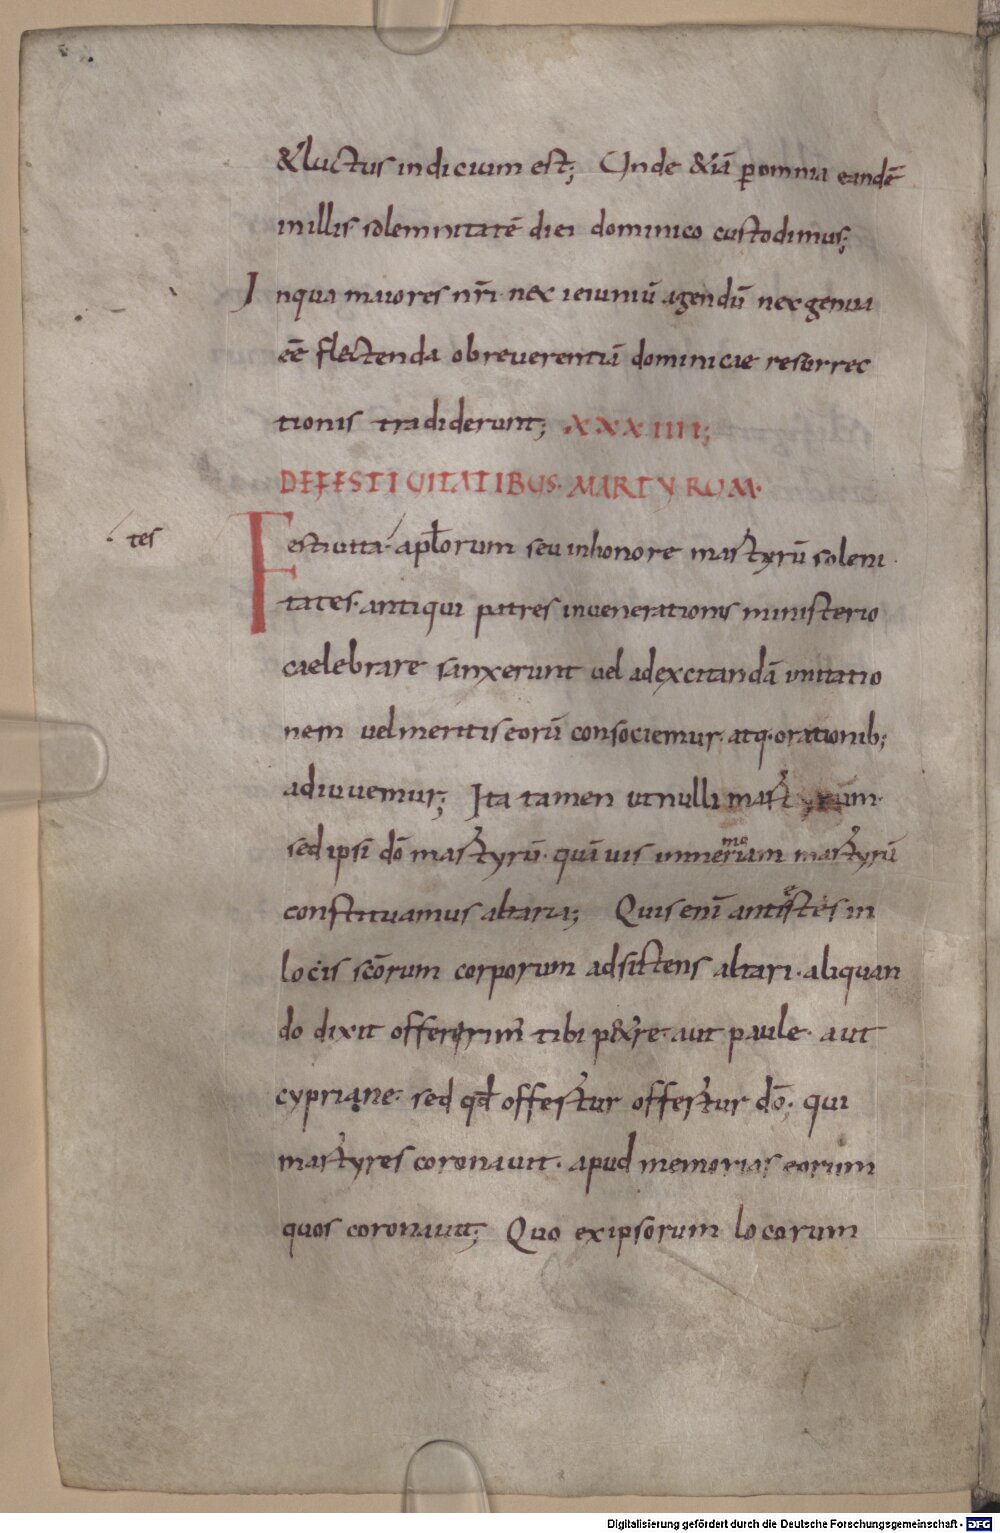 &luctus indicium est; Unde &iā ꝑomnia eandē
inillis solemnitatē diei dominico custodimus;
Inqua maiores nr̄i· nec ieiuniū agendū nec genua
eē flectenda obreuerentiā dominicae resurrec
tionis tradiderunt; XXXIIII;
DEFESTIUITATIBUS· MARTYRUM·
Festiuita· apłorum seu inhonore martyrū solem
tes
tates· antiqui patres inuenerationis ministerio
caelebrare sanxerunt uel adexcitandā imitatio
nem uel meritis eorū consociemur· atq· orationib;
adiuuemur; Ita tamen utnulli martyrum·
sed ipsi dō martyrū· quāuis inmemoriam martyrū
constituamus altaria; Quis enī antestes in
locis scōrum corporum adsistens altari· aliquan
do dixit offerrimꝰ tibi p&re· aut paule· aut
cypriane· sed qđ offertur offertur dō· qui
martyres coronauit· apud memorias eorum
quos coronauit; Quo exipsorum locorum
Digitalisierung gefördert durch die Deutsche Forschungsgemeinschaft - DFG